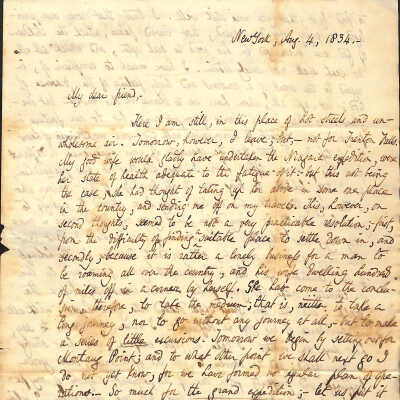 New York, Aug. 4, 1834.-
My dear friend,-
Here I am still, in this place of hot streets and un-
wholesome air. Tomorrow, however, I leave; but,- not for Trenton Falls.
My good wife would gladly have undertaken the Niagara expedition, were
her state of health adequate to the fatigue of it: but this not being
the case, she had thought of taking up her abode in some one place
in the country, and sending me off on my travels. This, however, on
second thoughts, seemed to be not a very practicable resolution; first,
from the difficulty of finding suitable place to settle down in, and
secondly, because it is rather a lonely business for a man to
be roaming all over the country, and his wife dwelling hundred
of miles off in a corner by herself. She has come to the conclu-
sion, therefore, to take the medium; that is, neither to take a
long journey, nor to go without any journey at all,- but to make
a series of little excursions. Tomorrow we begin by setting out for
Montaug Point; and to what other point we shall next go I
do not yet know, for we have formed no regular plan of ope-
rations.- So much for the grand expedition;- let us put it